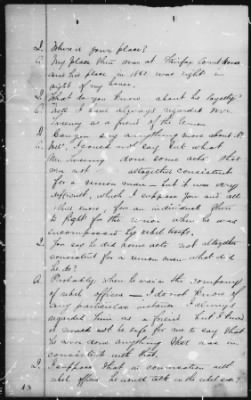 Q. Where is your place?
A. My place then was at Fairfax Court House
and his place in 1861 was right in
sight of my house.
Q. What do you know about his loyalty?
A. Well I have always regarded Mr.
as a friend of the Union
Q. Can you say anything more about it
A. Well, I could not say but what
Mr. done some acts that
was not altogether consistent
for a union man — but it was very
difficult, which I suppose you and all
that know, for an individual then
to fight for the union when he was
encompassed by rebel troops.
Q. You say he did some acts not altogether
consistent for a union man what did
he do?
A. Probably when he was in the company
of rebel officers — I do not know of
any particular instance. I always
regarded him as a friend but I know
it would not be safe for me to say that
he ever done anything that was in-
consistent with that.
Q. I suppose that in conversation with
rebel officers he would talk on the rebel side?